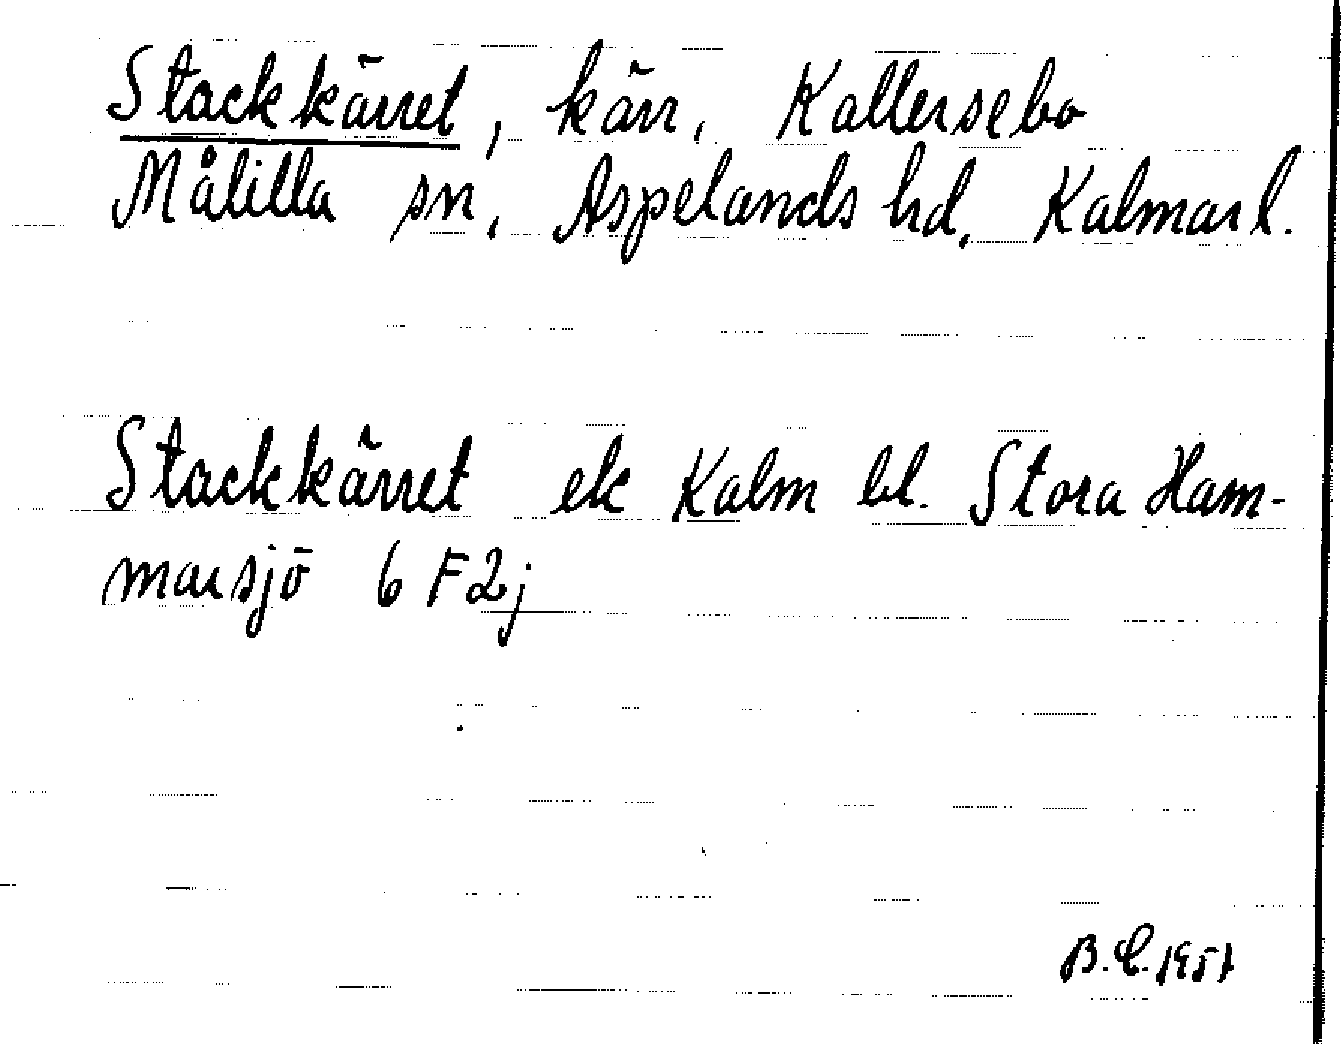 Stackkärret, kärr, Kallersebo
Målilla sn, Aspelands hd, Kalmar l.
Stackkärret ek Kalm bl. Stora Ham-
marsjö 6 F2j
B.E. 1951